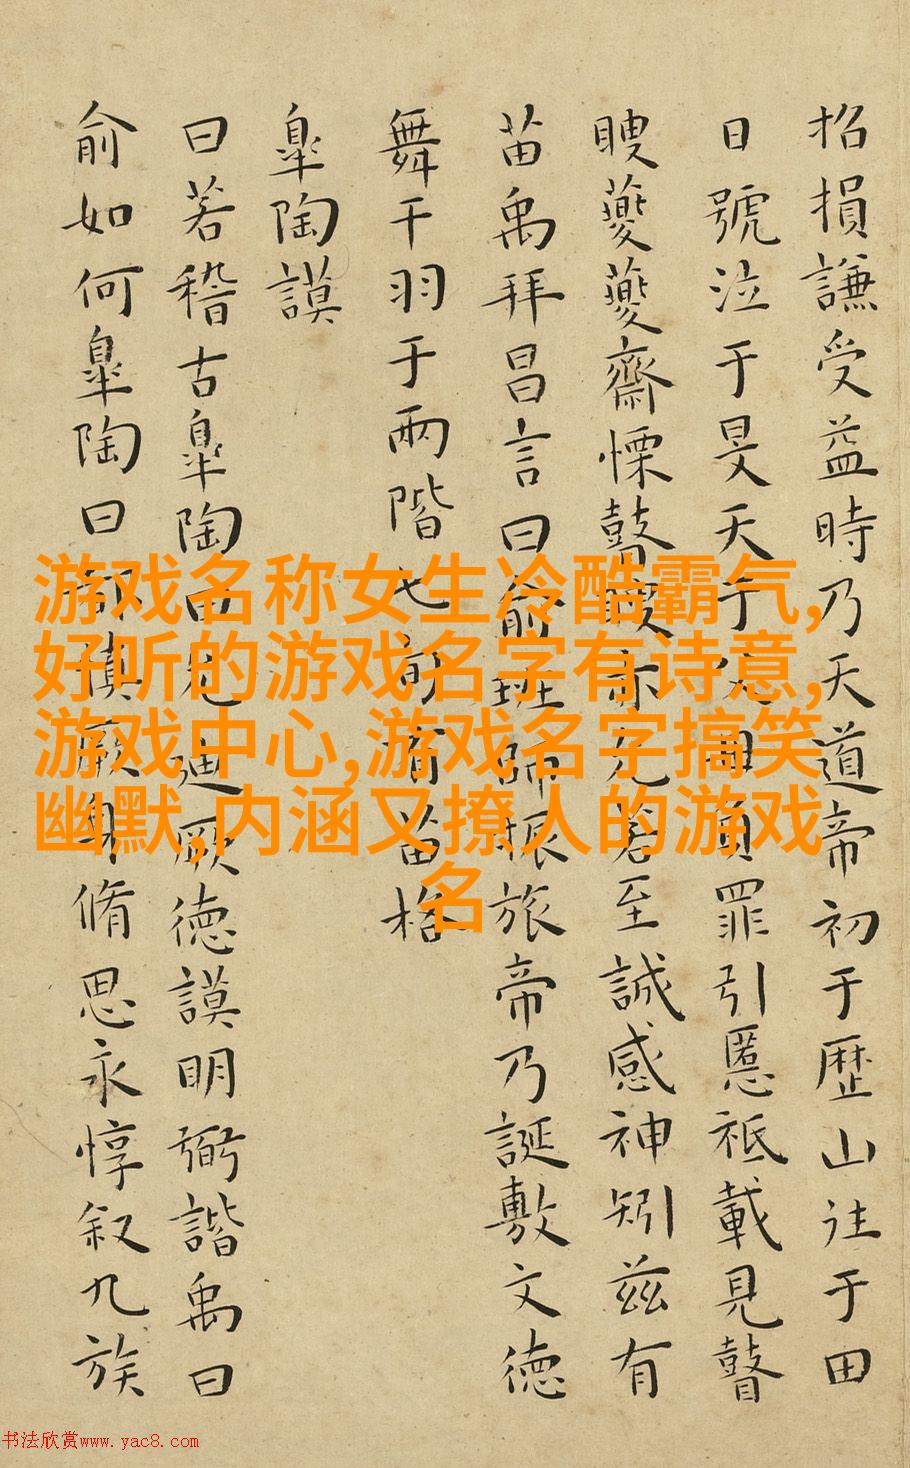 招損謙受益時乃天道帝初于歴山往于田
日號泣于旻天于父母負罪引慝祗載見瞽
瞍夔夔齋慄瞽瞍亦允若至諴感神矧茲有
苗禹拜昌言曰俞班師振旅帝乃誕敷文德
舞干羽于兩階七旬有苗格
皐陶謨
曰若稽古皐陶曰允迪厥德謨明弼諧禹曰
俞如何皐陶曰都慎厥身脩思永惇叙九族
游戏名称女生冷酷霸气,
好听的游戏名字有诗意,
游戏中心,游戏名字搞笑
幽默,内涵又撩人的游戏
名
书法欣赏www.yac8.com